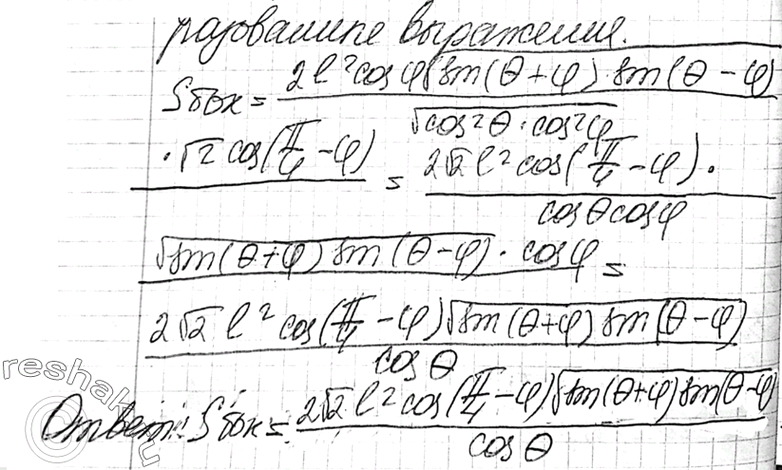 разование выражения.
Sбок = \frac{2l²cosφ√(sin(θ+φ) sin(θ-φ)}{√(cos²θ · cos²φ)}
\frac{· √2 cos(π/4 - φ)}{} = \frac{2√2 l² cos(π/4 - φ) ·}{cosθ cosφ}
\frac{√(sin(θ+φ) sin(θ-φ)) · cosφ}{} =
\frac{2√2 l² cos(π/4 - φ) √(sin(θ+φ) sin(θ-φ))}{cosθ}
Ответ: Sбок = \frac{2√2 l² cos(π/4 - φ) √(sin(θ+φ) sin(θ-φ))}{cosθ}
reshak